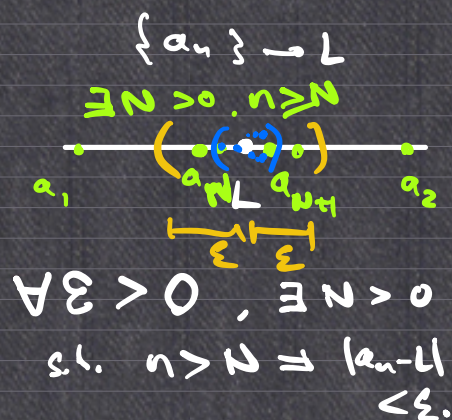 {aₙ} → L
∃N > 0, n ≥ N
a₁ a_N L a_{N+1} a₂
ε ε
∀ε > 0, ∃N > 0
s.t. n > N ⇒ |aₙ-L|
< ε.